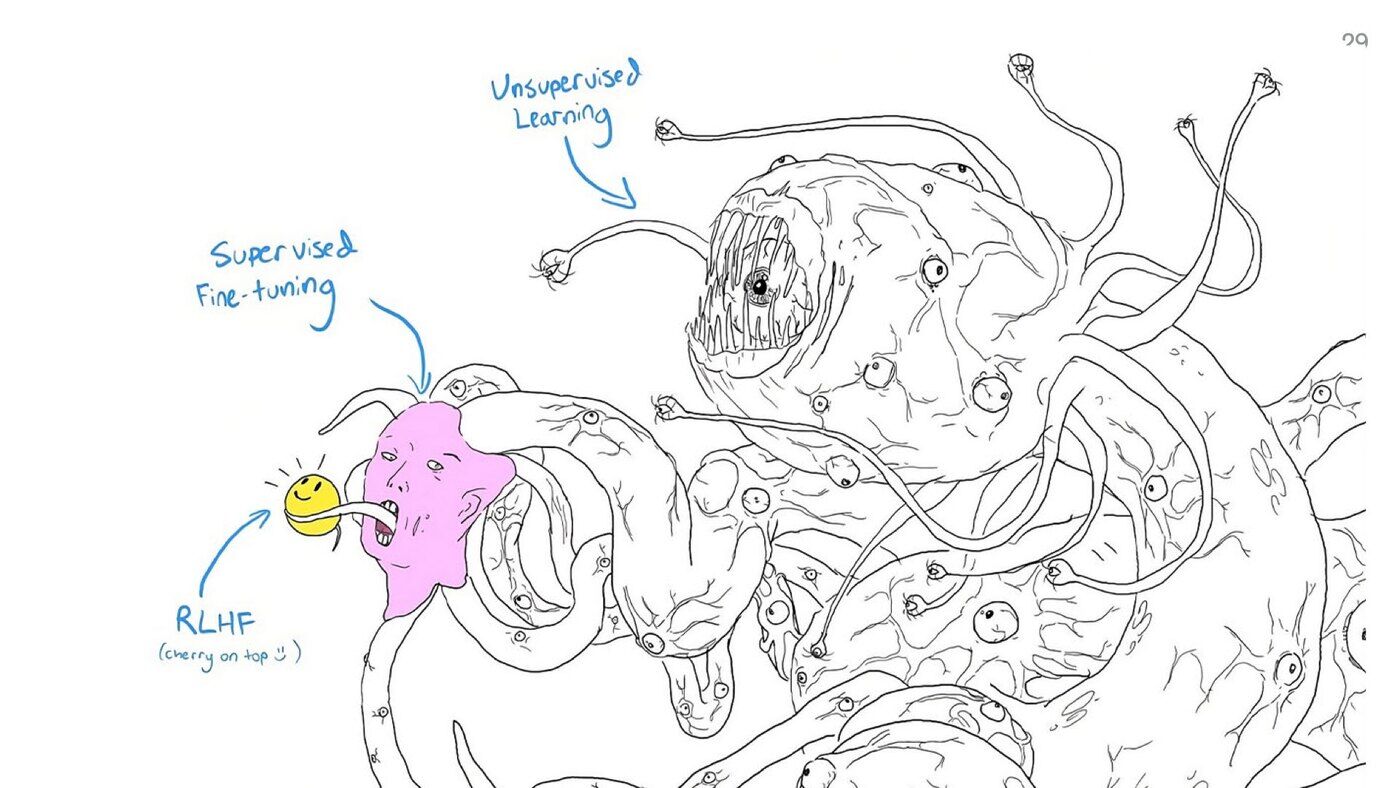 29
Unsupervised
Learning
Supervised
Fine-tuning
RLHF
(cherry on top )